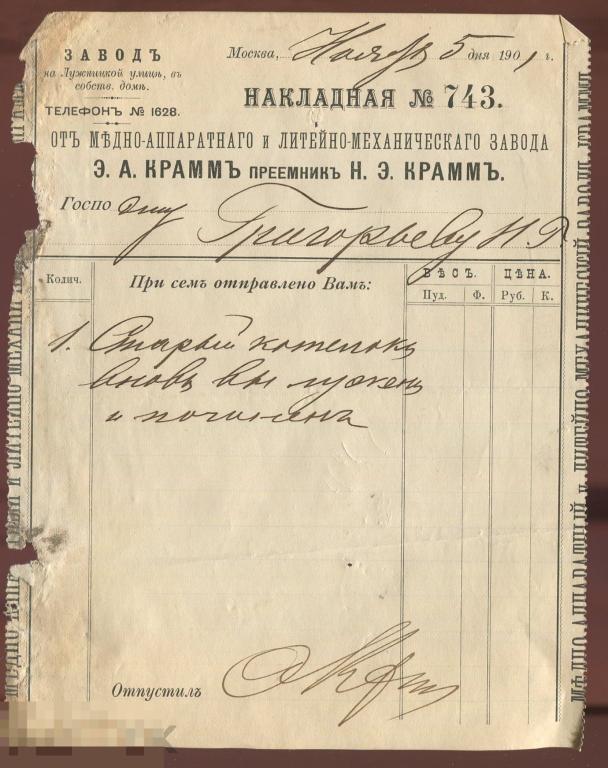 ЗАВОДЪ
на Лужницкой улицѣ, въ
собств. домѣ.
ТЕЛЕФОНЪ № 1628.
Москва, Ноября 5 дня 1901 г.
НАКЛАДНАЯ № 743.
ОТЪ МѢДНО-АППАРАТНАГО и ЛИТЕЙНО-МЕХАНИЧЕСКАГО ЗАВОДА
Э. А. КРАММЪ ПРЕЕМНИКЪ Н. Э. КРАММЪ.
Госпо дину Григорьеву
Колич.
При семъ отправлено Вамъ:
ВѢСЪ. ЦѢНА.
Пуд. Ф. Руб. К.
1. Старый котелокъ
вновь вылуженъ
и починенъ
Отпустилъ
МѢДНО-АППАРАТНЫЙ и ЛИТЕЙНО-МЕХАНИЧЕСКІЙ ЗАВОДЪ